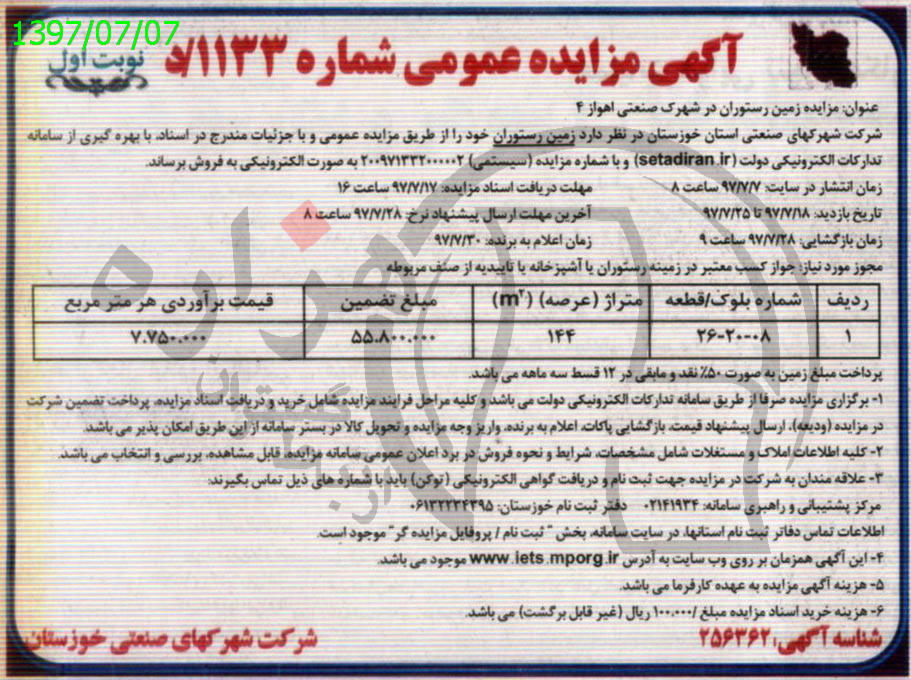 1397/07/07
آگهی مزایده عمومی شماره ۱۱۳۳/د
نوبت اول
عنوان: مزایده زمین رستوران در شهرک صنعتی اهواز ۴
شرکت شهرکهای صنعتی استان خوزستان در نظر دارد زمین رستوران خود را از طریق مزایده عمومی و با جزئیات مندرج در اسناد، با بهره گیری از سامانه
تدارکات الکترونیکی دولت (setadiran.ir) و با شماره مزایده (سیستمی) ۲۰۰۹۷۱۳۳۲۰۰۰۰۰۲ به صورت الکترونیکی به فروش برساند.
زمان انتشار در سایت: ۹۷/۷/۷ ساعت ۸ مهلت دریافت اسناد مزایده: ۹۷/۷/۱۷ ساعت ۱۶
تاریخ بازدید: ۹۷/۷/۱۸ تا ۹۷/۷/۲۵ آخرین مهلت ارسال پیشنهاد نرخ: ۹۷/۷/۲۸ ساعت ۸
زمان بازگشایی: ۹۷/۷/۲۸ ساعت ۹ زمان اعلام به برنده: ۹۷/۷/۳۰
مجوز مورد نیاز: جواز کسب معتبر در زمینه رستوران یا آشپزخانه یا تاییدیه از صنف مربوطه
ردیف شماره بلوک/قطعه متراژ (عرصه) (m۲) مبلغ تضمین قیمت برآوردی هر متر مربع
۱ ۲۶-۲۰-۰۸ ۱۴۴ ۵۵.۸۰۰.۰۰۰ ۷.۷۵۰.۰۰۰
پرداخت مبلغ زمین به صورت ۵۰٪ نقد و مابقی در ۱۲ قسط سه ماهه می باشد.
۱- برگزاری مزایده صرفا از طریق سامانه تدارکات الکترونیکی دولت می باشد و کلیه مراحل فرایند مزایده شامل خرید و دریافت اسناد مزایده، پرداخت تضمین شرکت
در مزایده (ودیعه)، ارسال پیشنهاد قیمت، بازگشایی پاکات، اعلام به برنده، واریز وجه مزایده و تحویل کالا در بستر سامانه از این طریق امکان پذیر می باشد.
۲- کلیه اطلاعات املاک و مستغلات شامل مشخصات، شرایط و نحوه فروش در برد اعلان عمومی سامانه مزایده، قابل مشاهده، بررسی و انتخاب می باشد.
۳- علاقه مندان به شرکت در مزایده جهت ثبت نام و دریافت گواهی الکترونیکی (توکن) باید با شماره های ذیل تماس بگیرند:
مرکز پشتیبانی و راهبری سامانه: ۰۲۱۴۱۹۳۴ دفتر ثبت نام خوزستان: ۰۶۱۳۲۲۳۴۳۹۵
اطلاعات تماس دفاتر ثبت نام استانها، در سایت سامانه، بخش "ثبت نام / پروفایل مزایده گر" موجود است.
۴- این آگهی همزمان بر روی وب سایت به آدرس www.iets.mporg.ir موجود می باشد.
۵- هزینه آگهی مزایده به عهده کارفرما می باشد.
۶- هزینه خرید اسناد مزایده مبلغ /۱۰۰.۰۰۰ ریال (غیر قابل برگشت) می باشد.
شناسه آگهی: ۲۵۶۳۶۲
شرکت شهرکهای صنعتی خوزستان